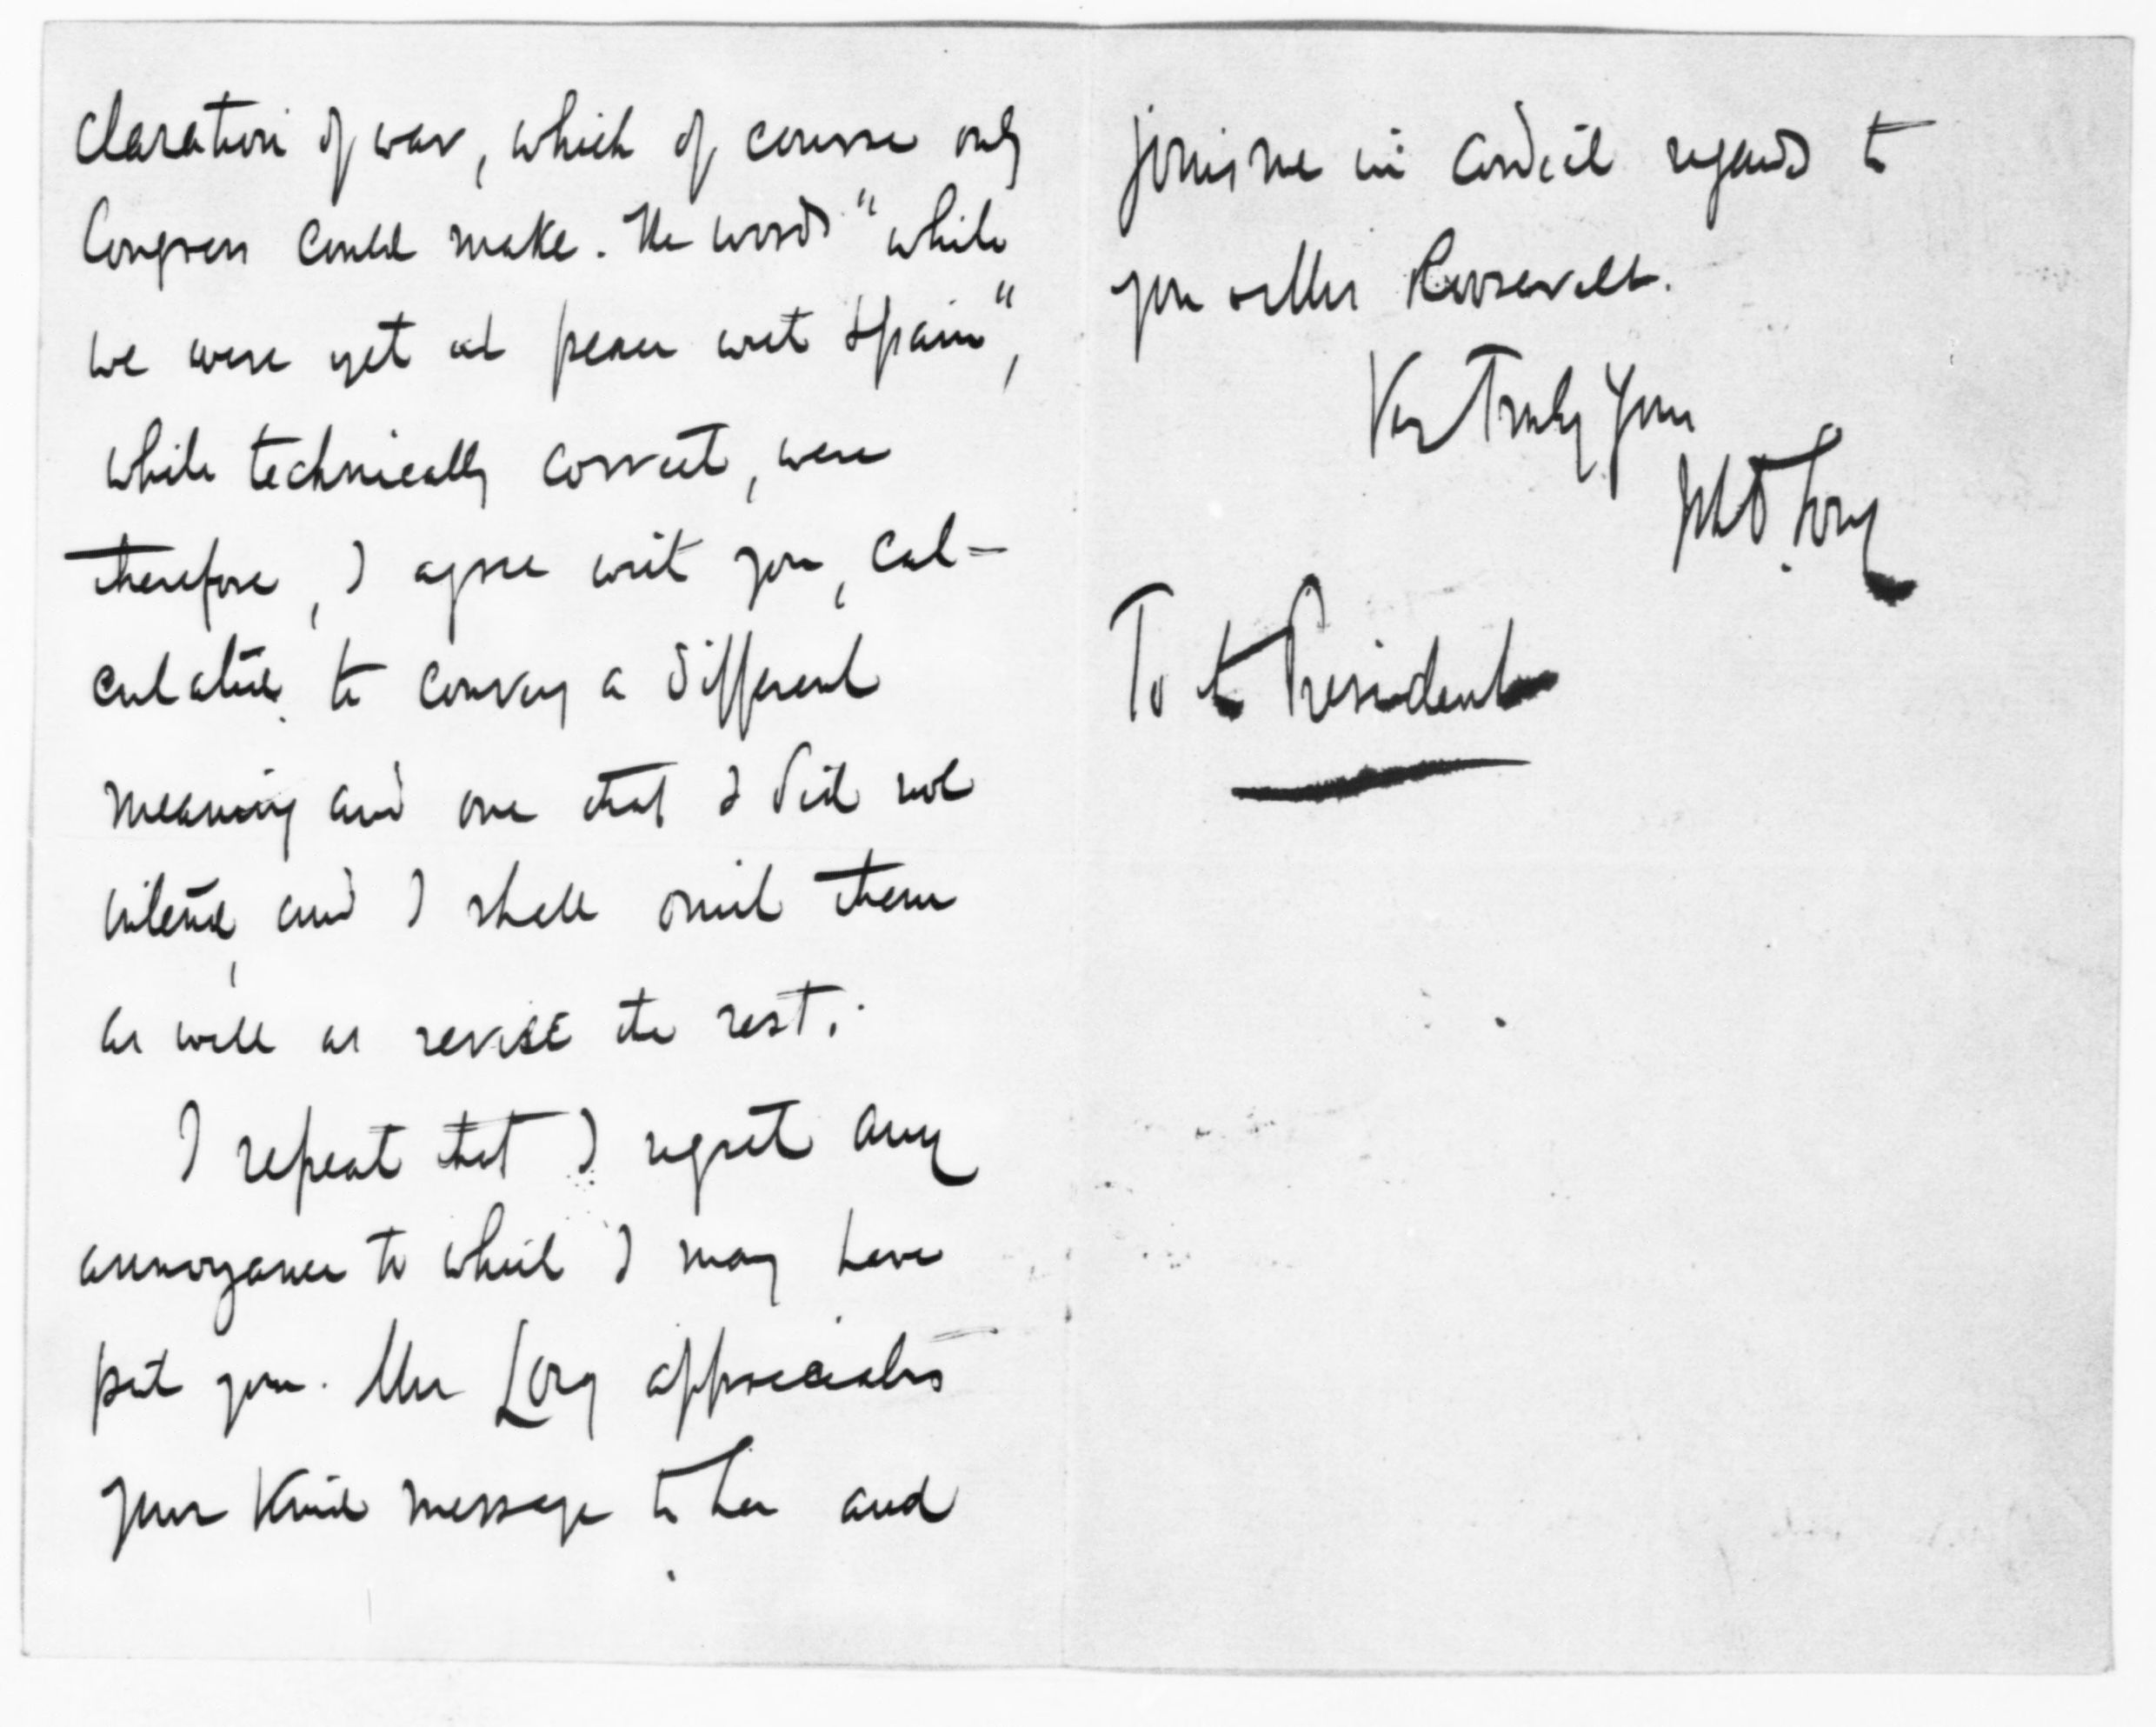 claration of war, which of course only
Congress could make. The words "while
we were yet at peace with Spain",
while technically correct, were
therefore, I agree with you, cal-
culated to convey a different
meaning and one that I did not
intend, and I shall omit them
as well as revise the rest.
I repeat that I regret any
annoyance to which I may have
put you. Mrs Long appreciates
your kind message to her and
joins me in cordial regards to
you & Mrs Roosevelt.
Very Truly Yours
J D Long
To the President